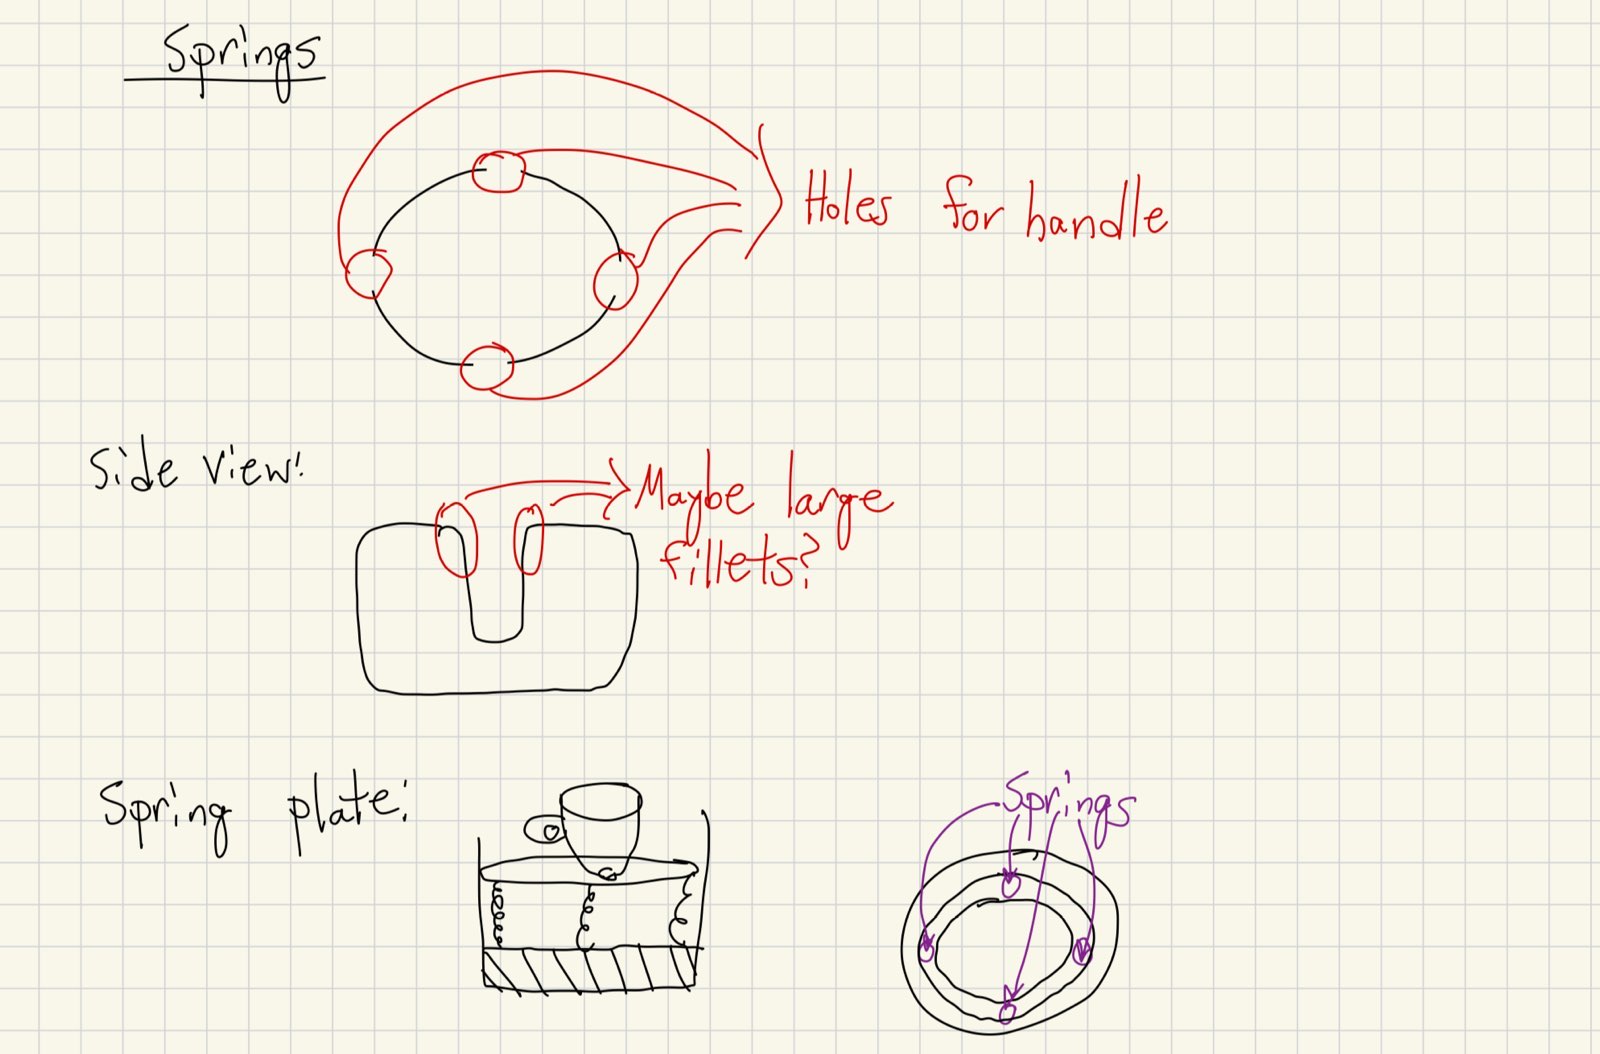 Springs
Holes for handle
Side view:
Maybe large
fillets?
Spring plate:
Springs